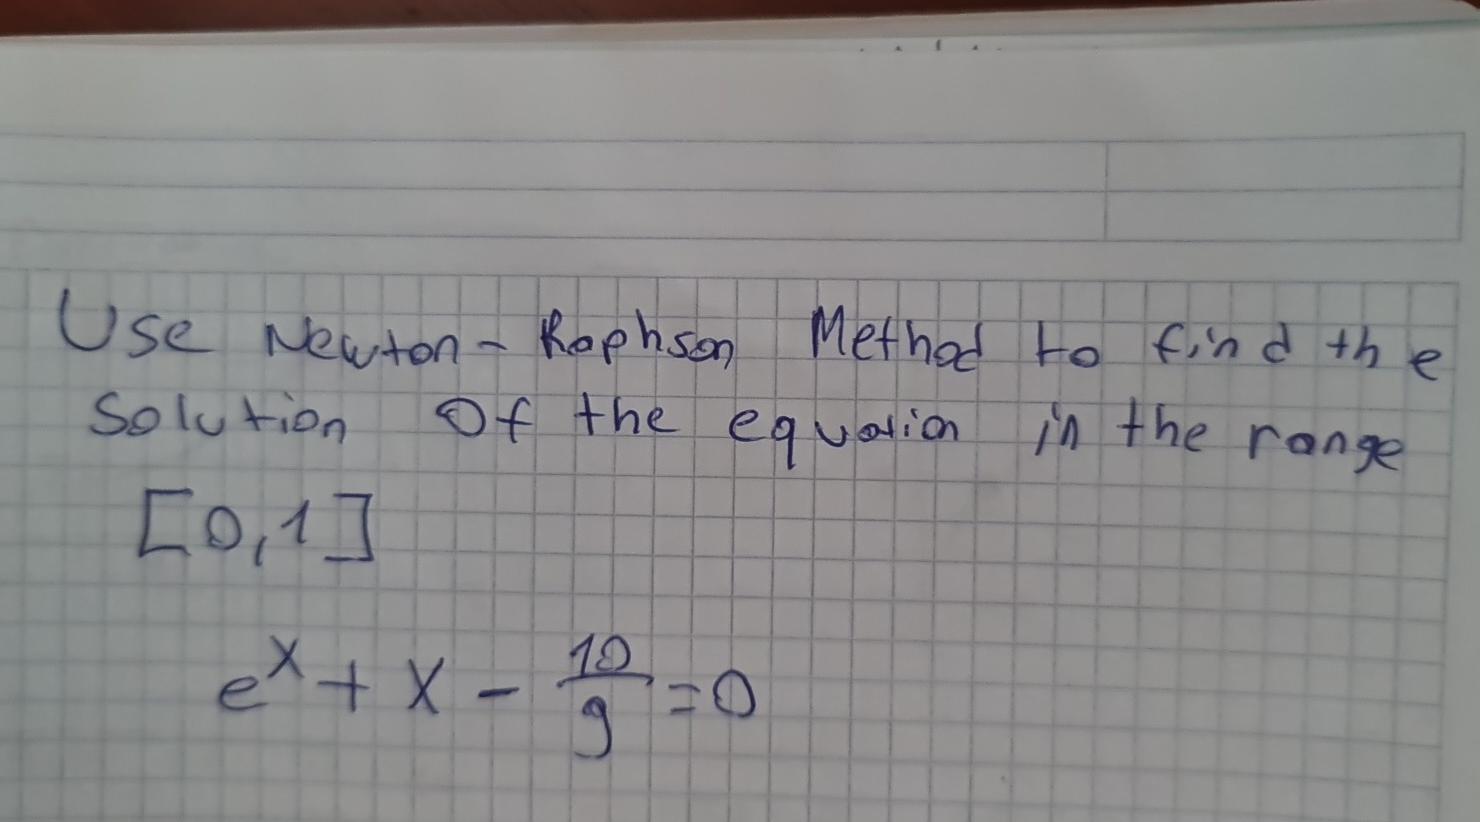 Use Newton - Raphson Method to find the
Solution Of the equation in the range
[0,1]
e^x + x - 10/9 = 0